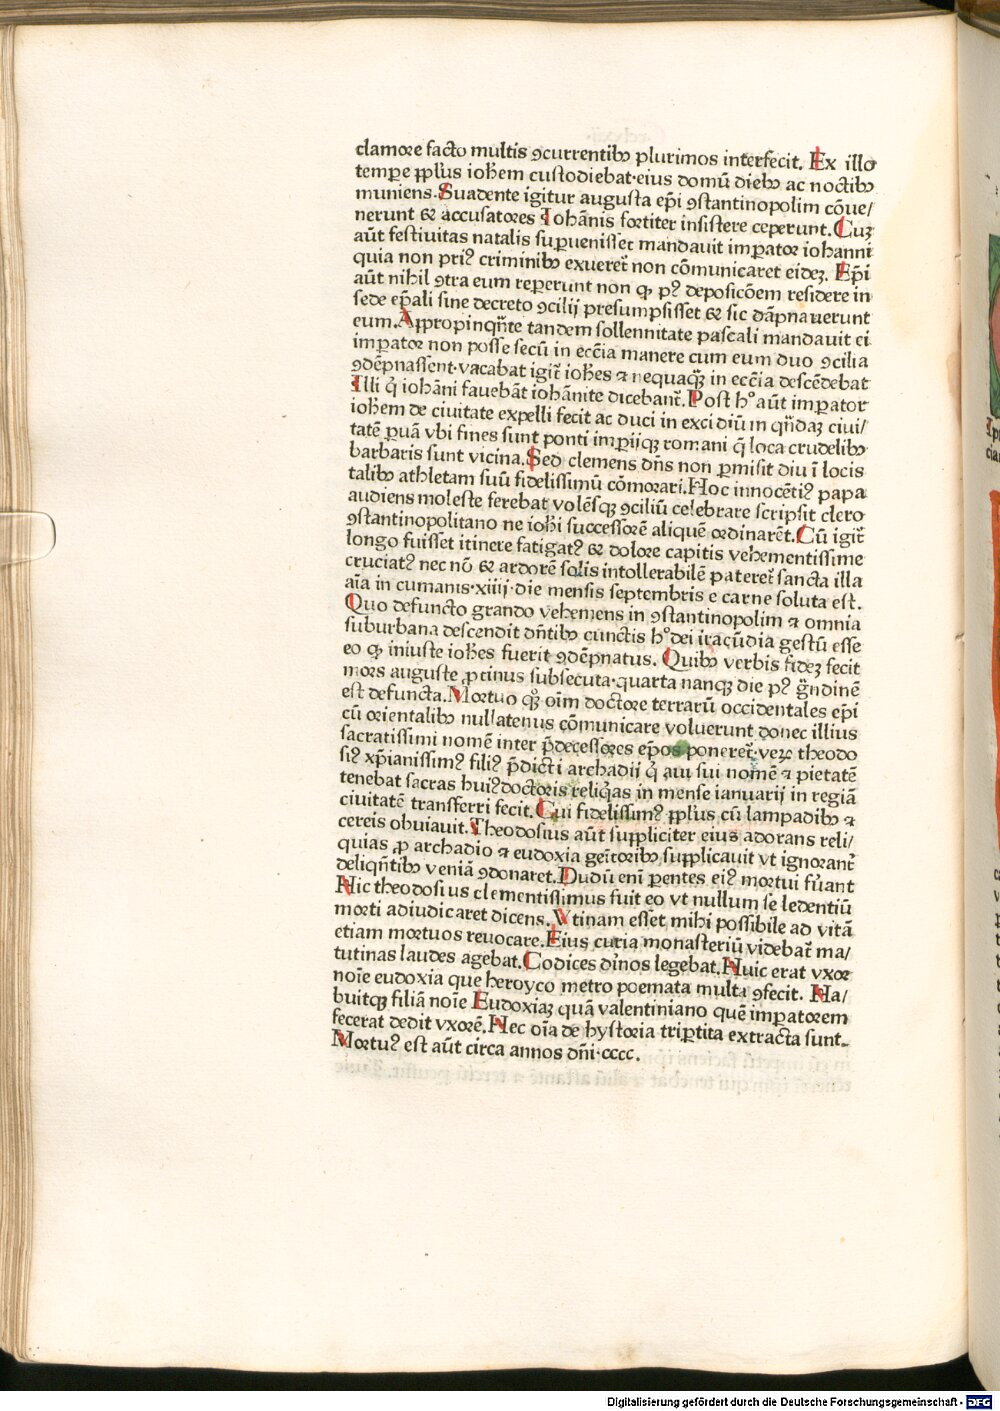 clamore facto multis ꝯcurrentibꝫ plurimos interfecit. Ex illo
tempe pplus iohem custodiebat·eius domū diebꝫ ac noctibꝫ
muniens. Suadente igitur augusta ep̄i ꝯstantinopolim cōue/
nerunt & accusatores Iohānis fortiter insistere ceperunt. Cuꝫ
aūt festiuitas natalis supuenisset mandauit impator iohanni
quia non priꝰ criminibꝫ exueret̄ non cōmunicaret eideꝫ. Ep̄i
aūt nihil ꝯtra eum reperunt non ꝙ pꝰ deposicōem residere in
sede ep̄ali sine decreto ꝯcilij presumpsisset & sic dāpnauerunt
eum. Appropinqn̄te tandem sollennitate pascali mandauit ei
impator non posse secū in ecc̄ia manere cum eum duo ꝯcilia
ꝯdēpnassent·vacabat igit̄ iohes ⁊ nequaꝙ̄ in ecc̄ia descēdebat
Illi q̄ iohāni fauebāt iohānite dicebant̄. Post hº aūt impator
iohem de ciuitate expelli fecit ac duci in exci diū in qn̄daꝫ ciui/
tatē puā vbi fines sunt ponti impijqꝫ romani q̄ loca crudelibꝫ
barbaris sunt vicina. Sed clemens dn̄s non pmisit diu ī locis
talibꝫ athletam suū fidelissimū cōmorari. Hoc innocētiꝰ papa
audiens moleste ferebat volēsqꝫ ꝯciliū celebrare scripsit clero
ꝯstantinopolitano ne iohi successorē aliquē ordinarēt. Cū igit̄
longo fuisset itinere fatigatꝰ & dolore capitis vehementissime
cruciatꝰ nec nō & ardorē solis intollerabilē pateret̄ sancta illa
aīa in cumanis·xiiij·die mensis septembris e carne soluta est.
Quo defuncto grando vehemens in ꝯstantinopolim ⁊ omnia
suburbana descendit dn̄tibꝫ cunctis hº dei iracūdia gestū esse
eo ꝙ iniuste iohes fuerit ꝯdēpnatus. Quibꝫ verbis fideꝫ fecit
mors auguste ꝓtinus subsecuta·quarta nanqꝫ die pꝰ gn̄dinē
est defuncta. Mortuo qꝫ oīm doctore terrarū occidentales ep̄i
cū orientalibꝫ nullatenus cōmunicare voluerunt donec illius
sacratissimi nomē inter p̄decessores ep̄os poneret̄·veꝝ theodo
siꝰ xp̄ianissimꝰ filiꝰ p̄dicti archadij q̄ aui sui nomē ⁊ pietatē
tenebat sacras huiꝰ doctoris reliq̄as in mense ianuarij in regiā
ciuitatē transferri fecit. Cui fidelissimꝰ pplus cū lampadibꝫ ⁊
cereis obuiauit. Theodosius aūt suppliciter eius adorans reli/
quias ꝓ archadio ⁊ eudoxia gen̄toribꝫ supplicauit vt ignorant̄
deliqn̄tibꝫ veniā ꝯdonaret. Dudū enī pentes eiꝰ mortui fūant
Hic theodosius clementissimus fuit eo vt nullum se ledentiū
morti adiudicaret dicens. Vtinam esset mihi possibile ad vitā
etiam mortuos reuocare. Eius curia monasteriū videbat̄ ma/
tutinas laudes agebat. Codices diīnos legebat. Huic erat vxor
noīe eudoxia que heroyco metro poemata multa ꝯfecit. Ha/
buitqꝫ filiā noīe Eudoxiaꝫ quā valentiniano quē impatorem
fecerat dedit vxorē. Hec oīa de hystoria tripartita extracta sunt.
Mortuꝰ est aūt circa annos dn̄i·cccc.
Digitalisierung gefördert durch die Deutsche Forschungsgemeinschaft - DFG